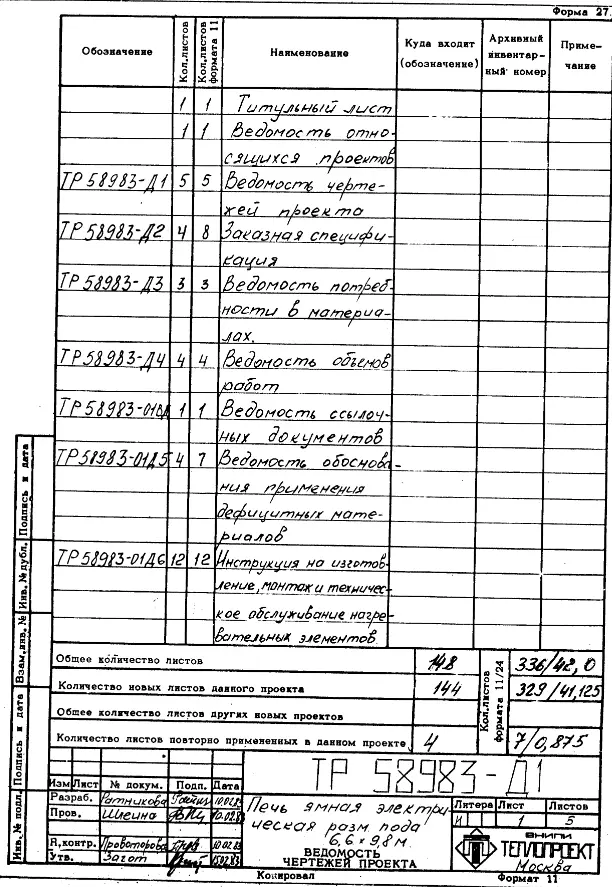 Форма 27.
Обозначение Кол.листов Кол.листов формата 11 Наименование Куда входит (обозначение) Архивный инвентарный номер Примечание
1 1 Титульный лист
1 1 Ведомость отно-
сящихся проектов
ТР 58983-Д1 5 5 Ведомость черте-
жей проекта
ТР 58983-Д2 4 8 Заказная специфи-
кация
ТР 58983-Д3 3 3 Ведомость потреб-
ности в материа-
лах.
ТР 58983-Д4 4 4 Ведомость объемов
работ
ТР 58983-01ВД 1 1 Ведомость ссылоч-
ных документов
ТР 58983-01Д5 4 7 Ведомость обоснова-
ния применения
дефицитных мате-
риалов
ТР 58983-01Д6 12 12 Инструкция на изготов-
ление, монтаж и техничес-
кое обслуживание нагре-
вательных элементов
Общее количество листов 148 Кол.листов формата 11/24 336/42,0
Количество новых листов данного проекта 144 329/41,125
Общее количество листов других новых проектов
Количество листов повторно примененных в данном проекте 4 7/0,875
Взам.инв. № Инв. № дубл. Подпись и дата
Инв. № подл. Подпись и дата
ТР 58983-Д1
Изм Лист № докум. Подп. Дата
Разраб. Ратникова 10.02.83
Пров. Шнеина 10.02.83
Н.контр. Провоторова 10.02.83
Утв. Загот 15.02.83
Печь ямная электри-
ческая разм. пода
6,6 × 9,8 м.
ВЕДОМОСТЬ
ЧЕРТЕЖЕЙ ПРОЕКТА
Литера Лист Листов
И 1 5
ВНИПИ
ТЕПЛОПРОЕКТ
Москва
Копировал Формат 11